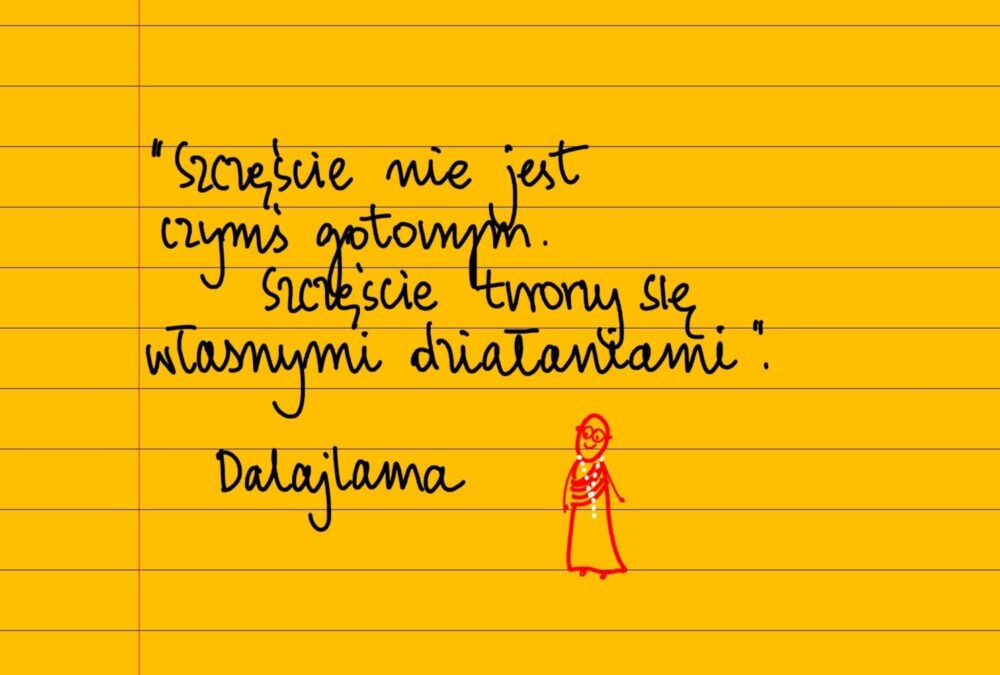 "Szczęście nie jest
czymś gotowym.
Szczęście tworzy się
własnymi działaniami".
Dalajlama